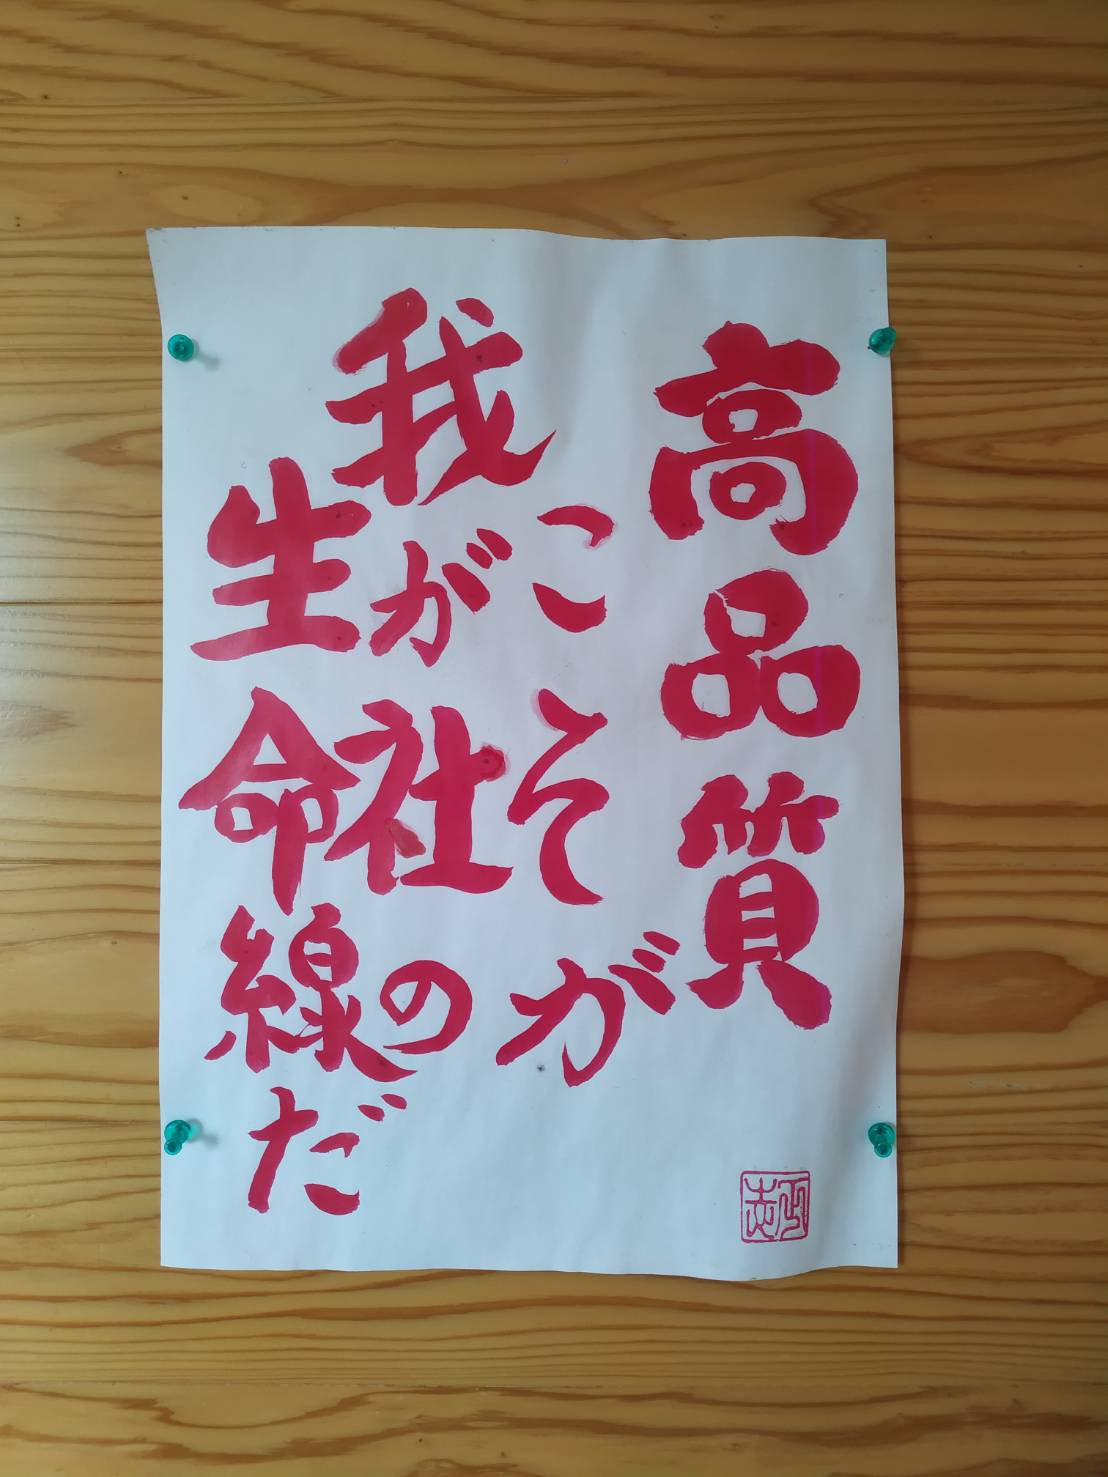 高品質
こそが
我が社の
生命線だ